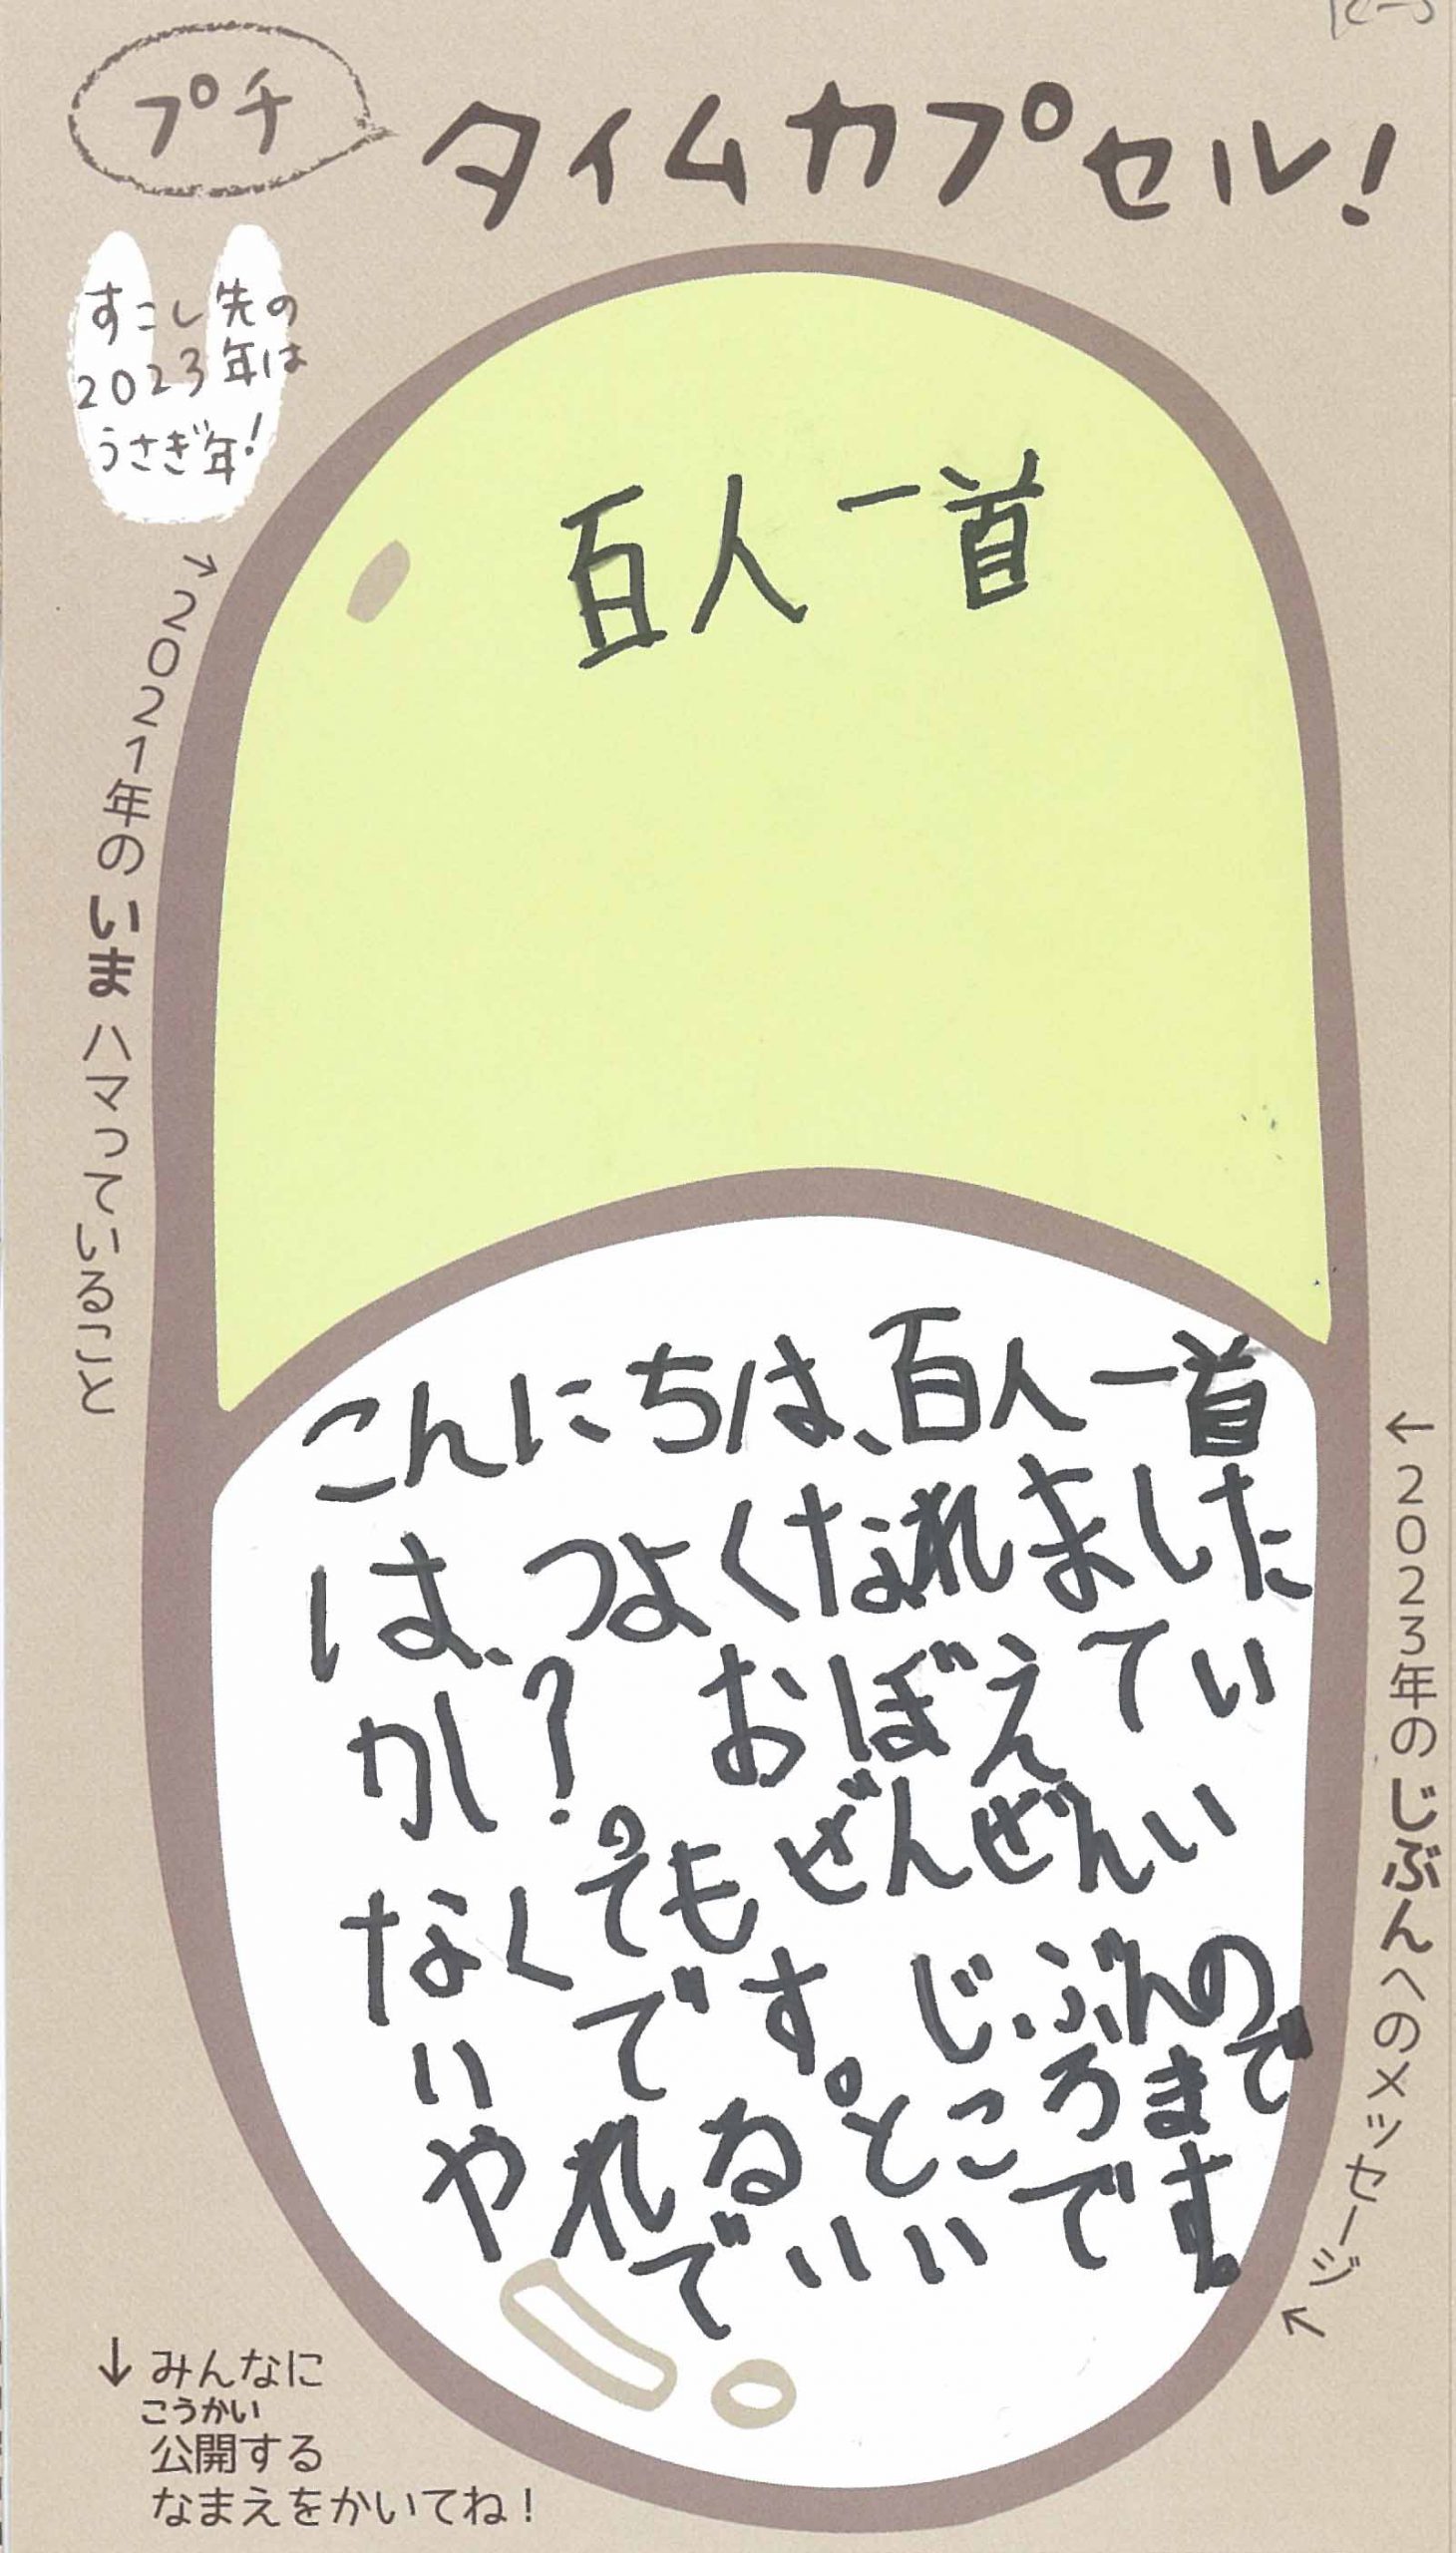 プチ
タイムカプセル!
すこし先の
2023年は
うさぎ年!
→2021年のいまハマっていること
百人一首
こんにちは、百人一首
は、つよくなれました
か?おぼえてい
なくてもぜんぜんい
いです。じぶんの
やれるところまで
でいいです。
←2023年のじぶんへのメッセージ↖
↓みんなに
こうかい
公開する
なまえをかいてね!